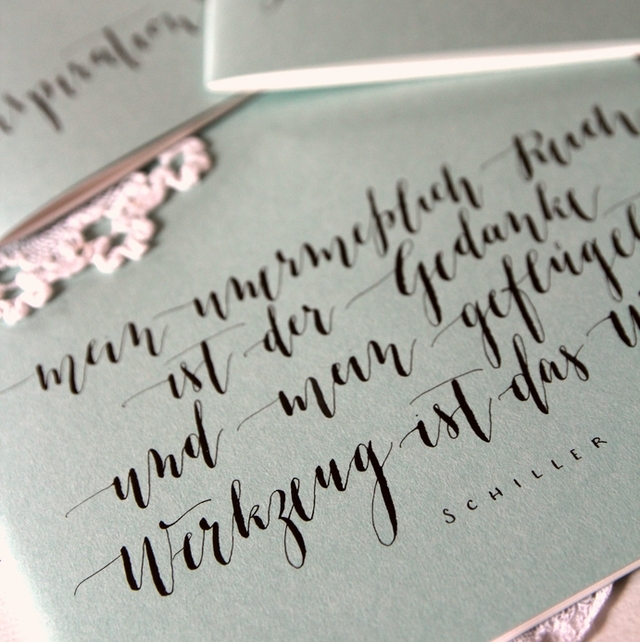 nspiration
mein unermeßlich Reich
ist der Gedanke
und mein geflügel
Werkzeug ist das W
SCHILLER